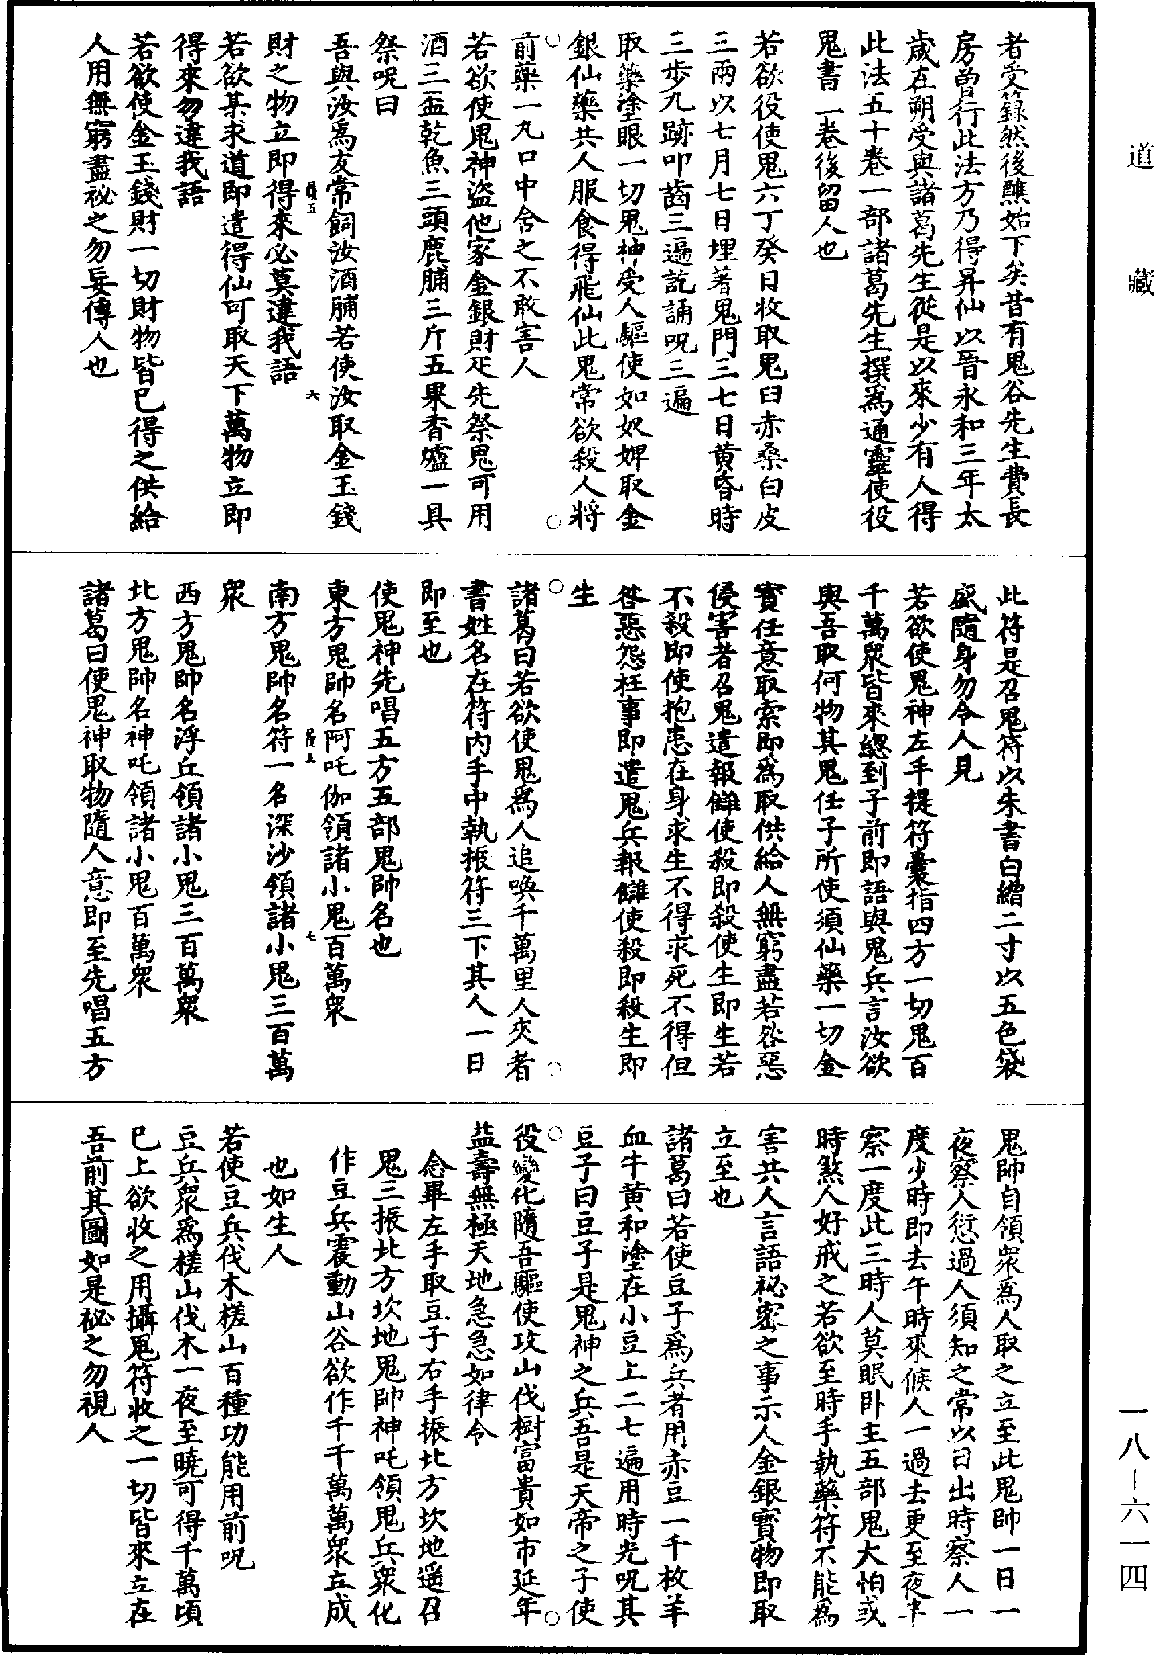 者受籙然後醮始下矣昔有鬼谷先生費長
房曾行此法方乃得昇仙以晉永和三年太
歲在朔受與諸葛先生從是以來少有人得
此法五十卷一部諸葛先生撰爲通靈使役
鬼書一卷後留人也
若欲役使鬼六丁癸日收取鬼臼赤桑白皮
三兩以七月七日埋著鬼門三七日黃昏時
三步九跡叩齒三遍訖誦呪三遍
取藥塗眼一切鬼神受人驅使如奴婢取金
銀仙藥共人服食得飛仙此鬼常欲殺人將
前藥一丸口中含之不敢害人
若欲使鬼神盜他家金銀財疋先祭鬼可用
酒三盃乾魚三頭鹿脯三斤五果香爐一具
祭呪曰
吾與汝爲友常飼汝酒脯若使汝取金玉錢
財之物立即得來必莫違我語
若欲某求道即遣得仙可取天下萬物立即
得來勿違我語
若欲使金玉錢財一切財物皆已得之供給
人用無窮盡祕之勿妄傳人也
此符是召鬼符以朱書白繒二寸以五色袋
盛隨身勿令人見
若欲使鬼神左手提符囊指四方一切鬼百
千萬衆皆來總到子前即語與鬼兵言汝欲
與吾取何物其鬼任子所使須仙藥一切金
寳任意取索即爲取供給人無窮盡若咎惡
侵害者召鬼遣報讎使殺即殺使生即生若
不殺即使抱患在身求生不得求死不得但
咎惡怨枉事即遣鬼兵報讎使殺即殺生即
生
諸葛曰若欲使鬼爲人追喚千萬里人夾者
書姓名在符內手中執振符三下其人一日
即至也
使鬼神先唱五方五部鬼帥名也
東方鬼帥名阿吒伽領諸小鬼百萬衆
南方鬼帥名符一名深沙領諸小鬼三百萬
衆
西方鬼帥名浮丘領諸小鬼三百萬衆
北方鬼帥名神吒領諸小鬼百萬衆
諸葛曰使鬼神取物隨人意即至先唱五方
鬼帥自領衆爲人取之立至此鬼帥一日一
夜察人愆過人須知之常以日出時察人一
度少時即去午時來候人一過去更至夜半
察一度此三時人莫眠卧主五部鬼大怕或
時煞人好戒之若欲至時手執藥符不能爲
害共人言語祕密之事示人金銀寳物即取
立至也
諸葛曰若使豆子爲兵者用赤豆一千枚羊
血牛黃和塗在小豆上二七遍用時光呪其
豆子曰豆子是鬼神之兵吾是天帝之子使
役變化隨吾驅使攻山伐樹富貴如市延年
益壽無極天地急急如律令
念畢左手取豆子右手振北方坎地遥召
鬼三振北方坎地鬼帥神吒領鬼兵衆化
作豆兵震動山谷欲作千千萬萬衆立成
也如生人
若使豆兵伐木槎山百種功能用前呪
豆兵衆爲槎山伐木一夜至曉可得千萬頃
已上欲收之用攝鬼符收之一切皆來立在
吾前其圖如是祕之勿視人
道藏
一八–六一四